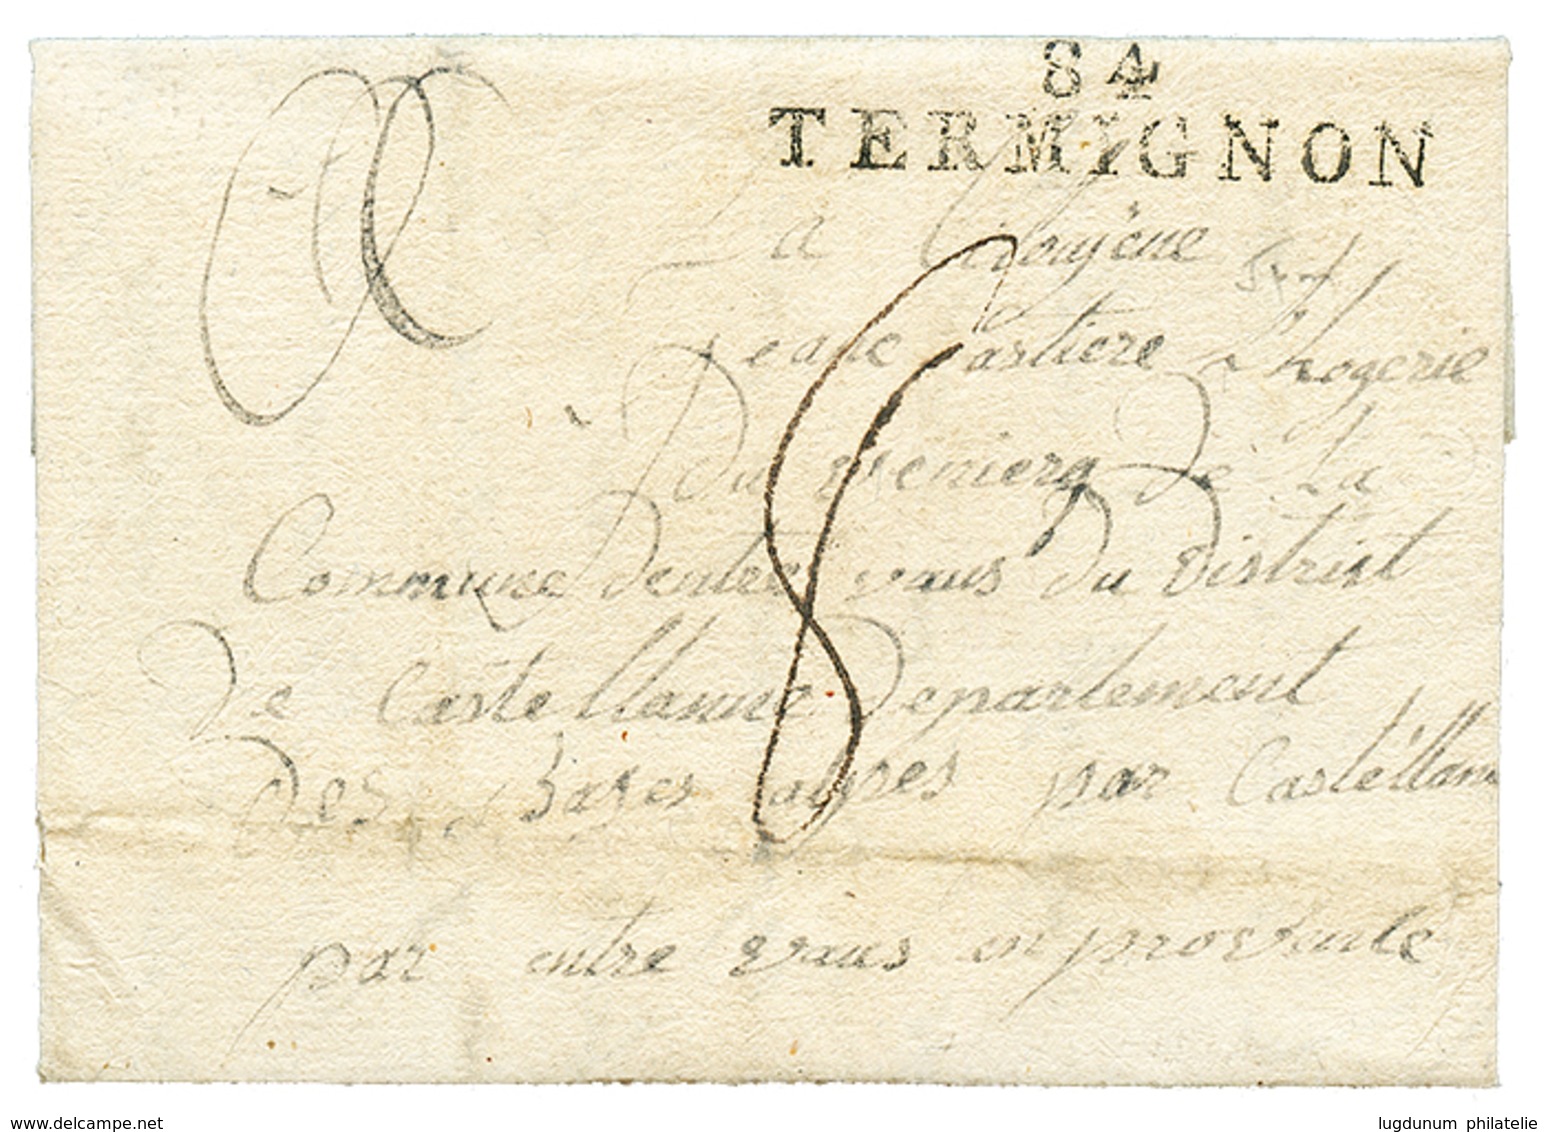 84
TERMIGNON
a la Citoyéne
jeane Cartiere
Du de la
Commune dentre vaus Du District
De Castellanne Departement
Des bases alpes par Castéllane
par entre vaus en provence
8
www.delcampe.net
lugdunum philatelie